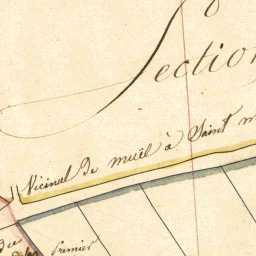 Section
Vicinal de muël à Saint m
Premier